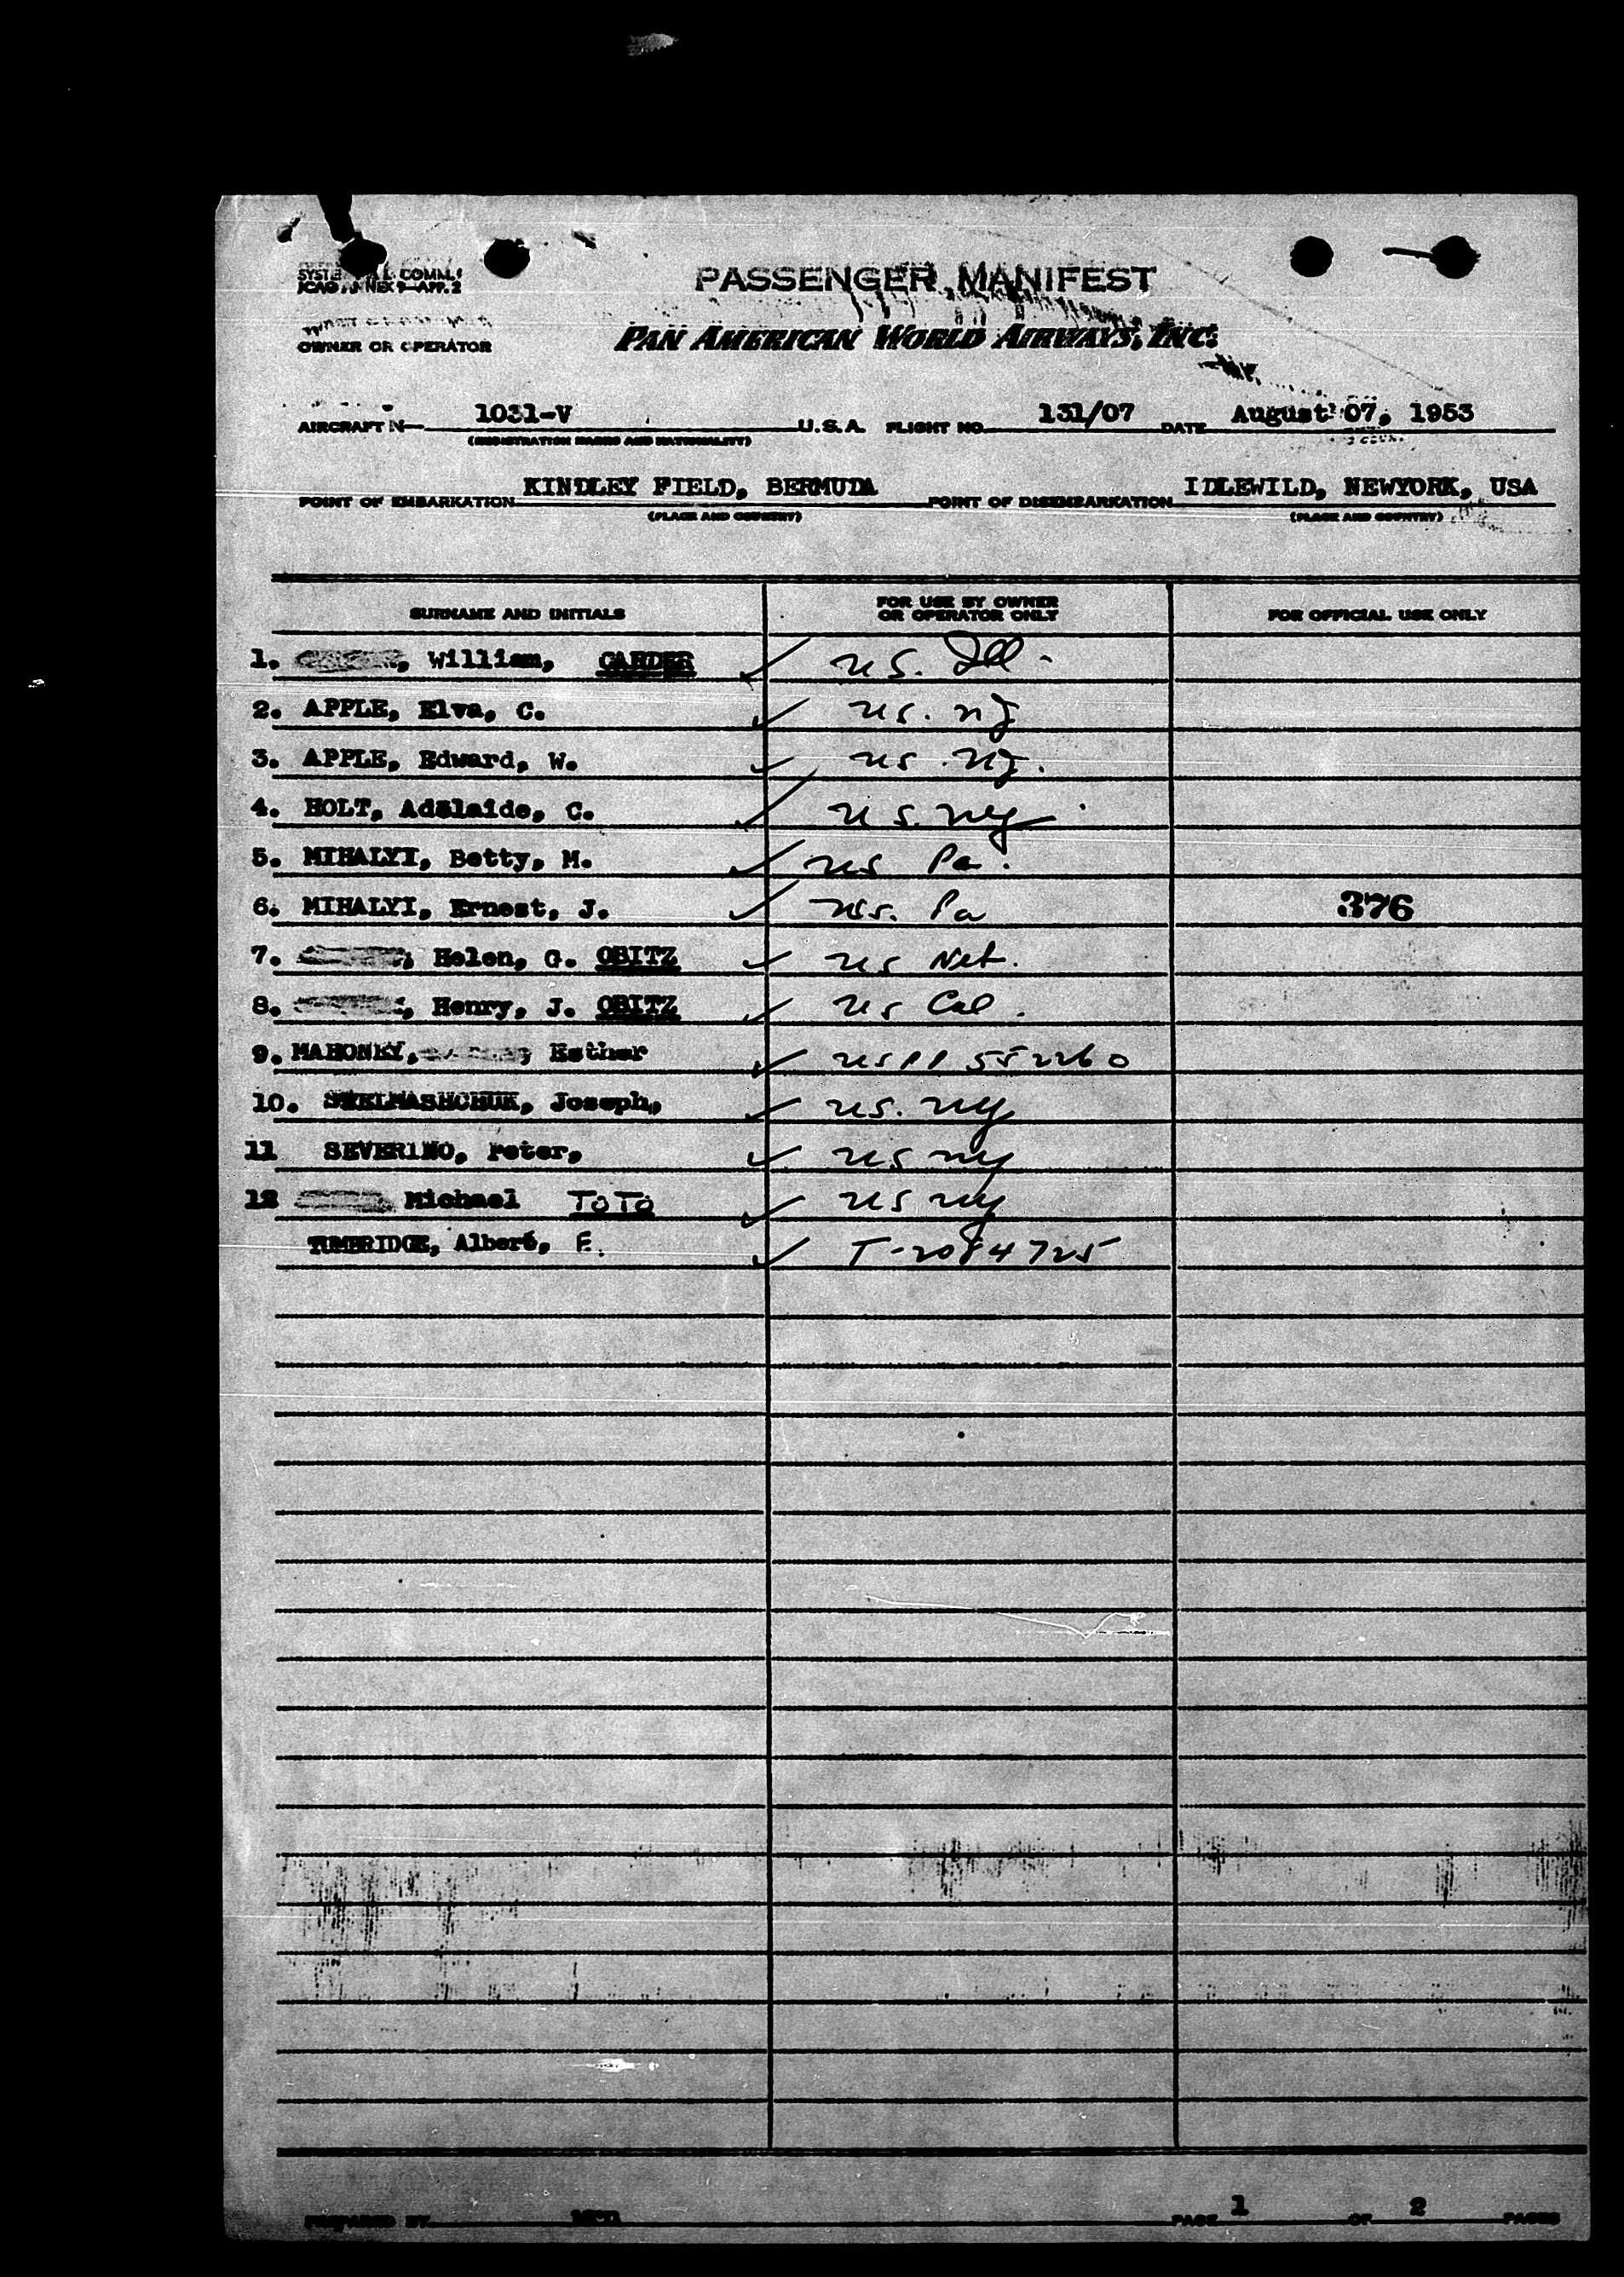 PASSENGER MANIFEST
ICAO ANNEX 9—APP. 2
OWNER OR OPERATOR
PAN AMERICAN WORLD AIRWAYS, INC.
AIRCRAFT N— 1031-V U.S.A. FLIGHT NO. 131/07 DATE August 07, 1953
(REGISTRATION MARKS AND NATIONALITY)
POINT OF EMBARKATION KINDLEY FIELD, BERMUDA POINT OF DISEMBARKATION IDLEWILD, NEWYORK, USA
(PLACE AND COUNTRY) (PLACE AND COUNTRY)
SURNAME AND INITIALS FOR USE BY OWNER OR OPERATOR ONLY FOR OFFICIAL USE ONLY
1. William, CARDER US. Ill.
2. APPLE, Elva, C. US. NJ
3. APPLE, Edward, W. US. NJ.
4. HOLT, Adelaide, C. US. NY
5. MIHALYI, Betty, M. US Pa.
6. MIHALYI, Ernest, J. US. Pa 376
7. Helen, G. OBITZ US Nat.
8. Henry, J. OBITZ US Cal.
9. MAHONEY, Esther USPP 552260
10. STELMASHCHUK, Joseph, US. NY
11 SEVERINO, Peter, US NY
12 Michael TOTO US NY
TUMBRIDGE, Albert, E. T-2084725
PREPARED BY PAGE 1 OF 2 PAGES